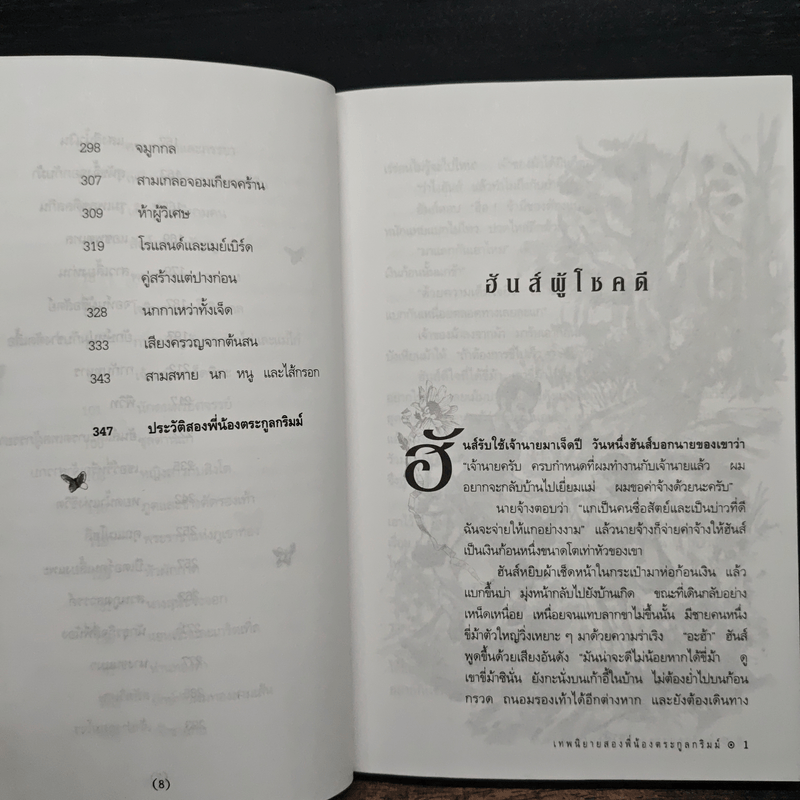 298 จมูกกล
307 สามเกลอจอมเกียจคร้าน
309 ห้าผู้วิเศษ
319 โรแลนด์และเมย์เบิร์ด
คู่สร้างแต่ปางก่อน
328 นกกาเหว่าทั้งเจ็ด
333 เสียงครวญจากต้นสน
343 สามสหาย นก หนู และไส้กรอก
347 ประวัติสองพี่น้องตระกูลกริมม์
(8)
ฮันส์ผู้โชคดี
ฮันส์รับใช้เจ้านายมาเจ็ดปี วันหนึ่งฮันส์บอกนายของเขาว่า
“เจ้านายครับ ครบกำหนดที่ผมทำงานกับเจ้านายแล้ว ผม
อยากจะกลับบ้านไปเยี่ยมแม่ ผมขอค่าจ้างด้วยนะครับ”
นายจ้างตอบว่า “แกเป็นคนซื่อสัตย์และเป็นบ่าวที่ดี
ฉันจะจ่ายให้แกอย่างงาม” แล้วนายจ้างก็จ่ายค่าจ้างให้ฮันส์
เป็นเงินก้อนหนึ่งขนาดโตเท่าหัวของเขา
ฮันส์หยิบผ้าเช็ดหน้าในกระเป๋ามาห่อก้อนเงิน แล้ว
แบกขึ้นบ่า มุ่งหน้ากลับไปยังบ้านเกิด ขณะที่เดินกลับอย่าง
เหน็ดเหนื่อย เหนื่อยจนแทบลากขาไม่ขึ้นนั้น มีชายคนหนึ่ง
ขี่ม้าตัวใหญ่วิ่งเหยาะ ๆ มาด้วยความร่าเริง “อะฮ้า” ฮันส์
พูดขึ้นด้วยเสียงอันดัง “มันน่าจะดีไม่น้อยหากได้ขี่ม้า ดู
เขาขี่ม้าซินั่น ยังกะนั่งบนเก้าอี้ในบ้าน ไม่ต้องย่ำไปบนก้อน
กรวด ถนอมรองเท้าได้อีกต่างหาก และยังต้องเดินทาง
เทพนิยายสองพี่น้องตระกูลกริมม์ ๏ 1